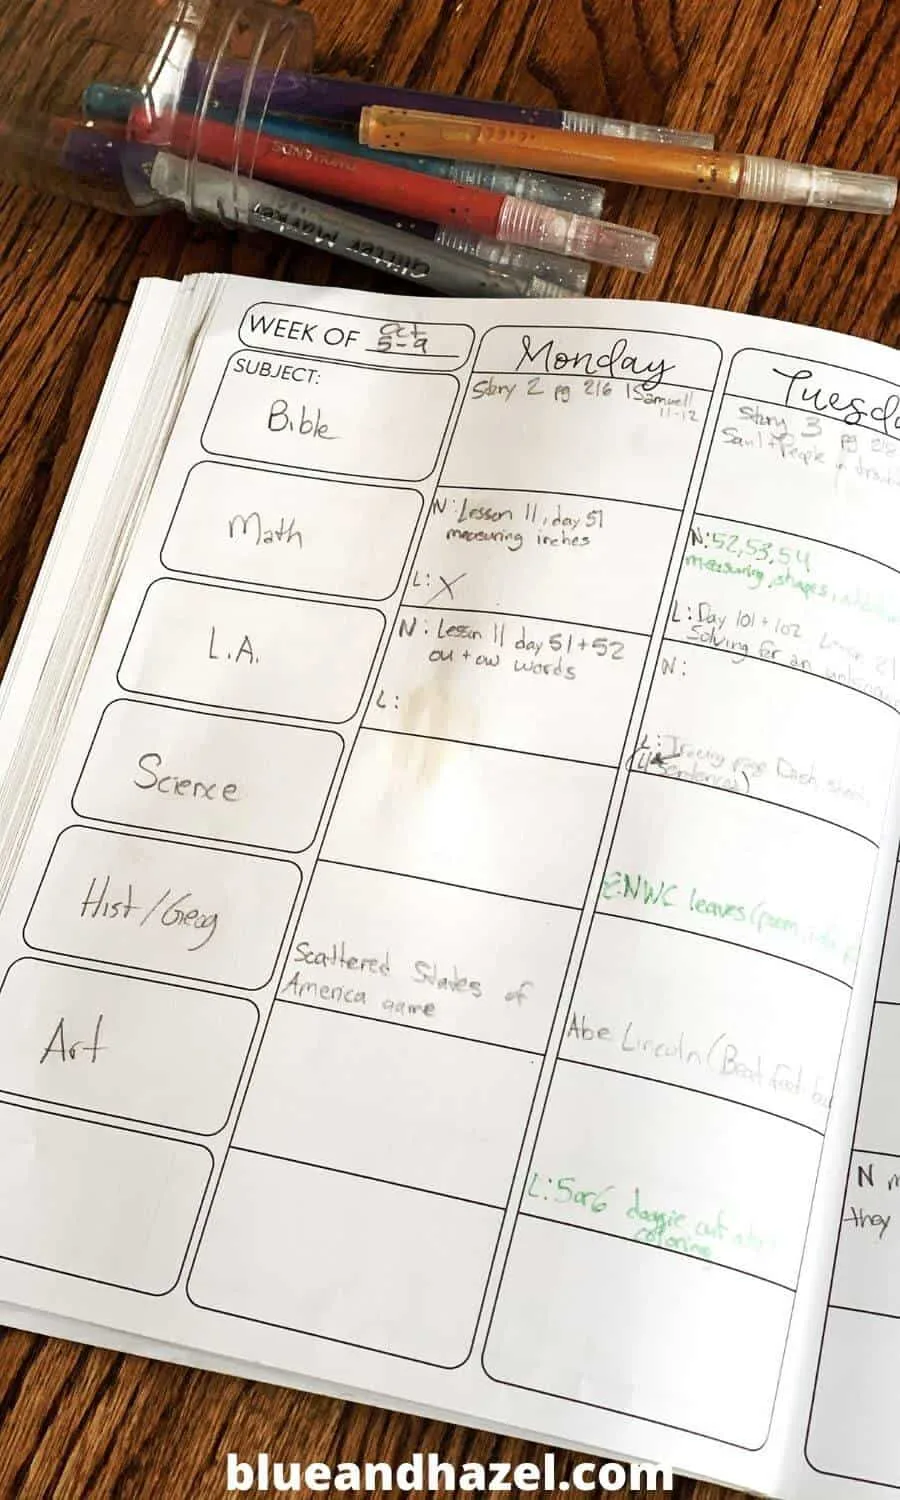 Glitter Marker
WEEK OF Oct
5-9
SUBJECT:
Bible
Math
L.A.
Science
Hist/Geog
Art
Monday
Story 2 pg 216 1Samuel
11-12
N: Lesson 11, day 51
measuring inches
L: X
N: Lesson 11 day 51+52
ou + ow words
L:
Scattered States of
America game
Tuesd
Story 3 pg 218
Saul + People
N: 52,53,54
measuring, shapes,
L: Day 101 + 102
Solving for an
N:
L:
(4 Sentences)
NWC leaves (poem,
Abe Lincoln (
L: 5 or 6 doggie cut
coloring
N
they
blueandhazel.com